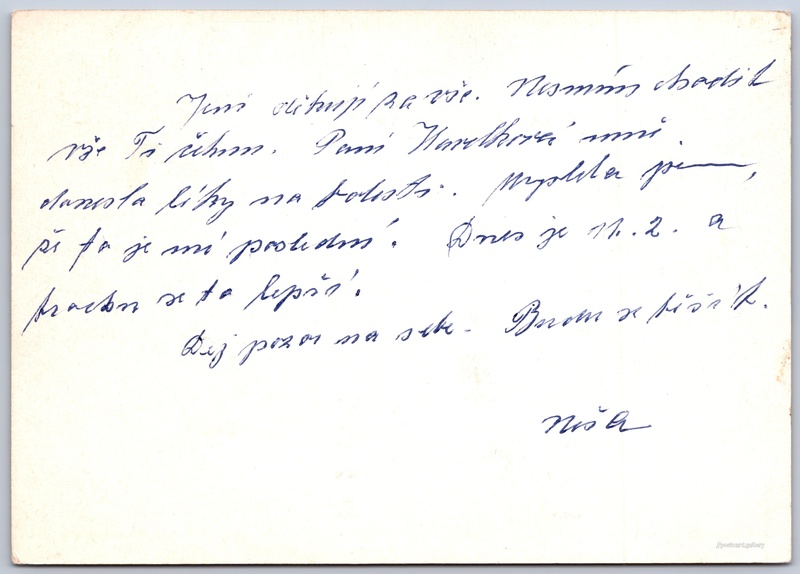 Jeni děkuji za vše. Nesmím chodit
vše Ti řeknu. Paní Havelková mně
donesla léky na bolesti. Myslela jsem,
že to je mé poslední. Dnes je 11. 2. a
trochu se to lepší.
Dej pozor na sebe. Budu se těšit.
Neša